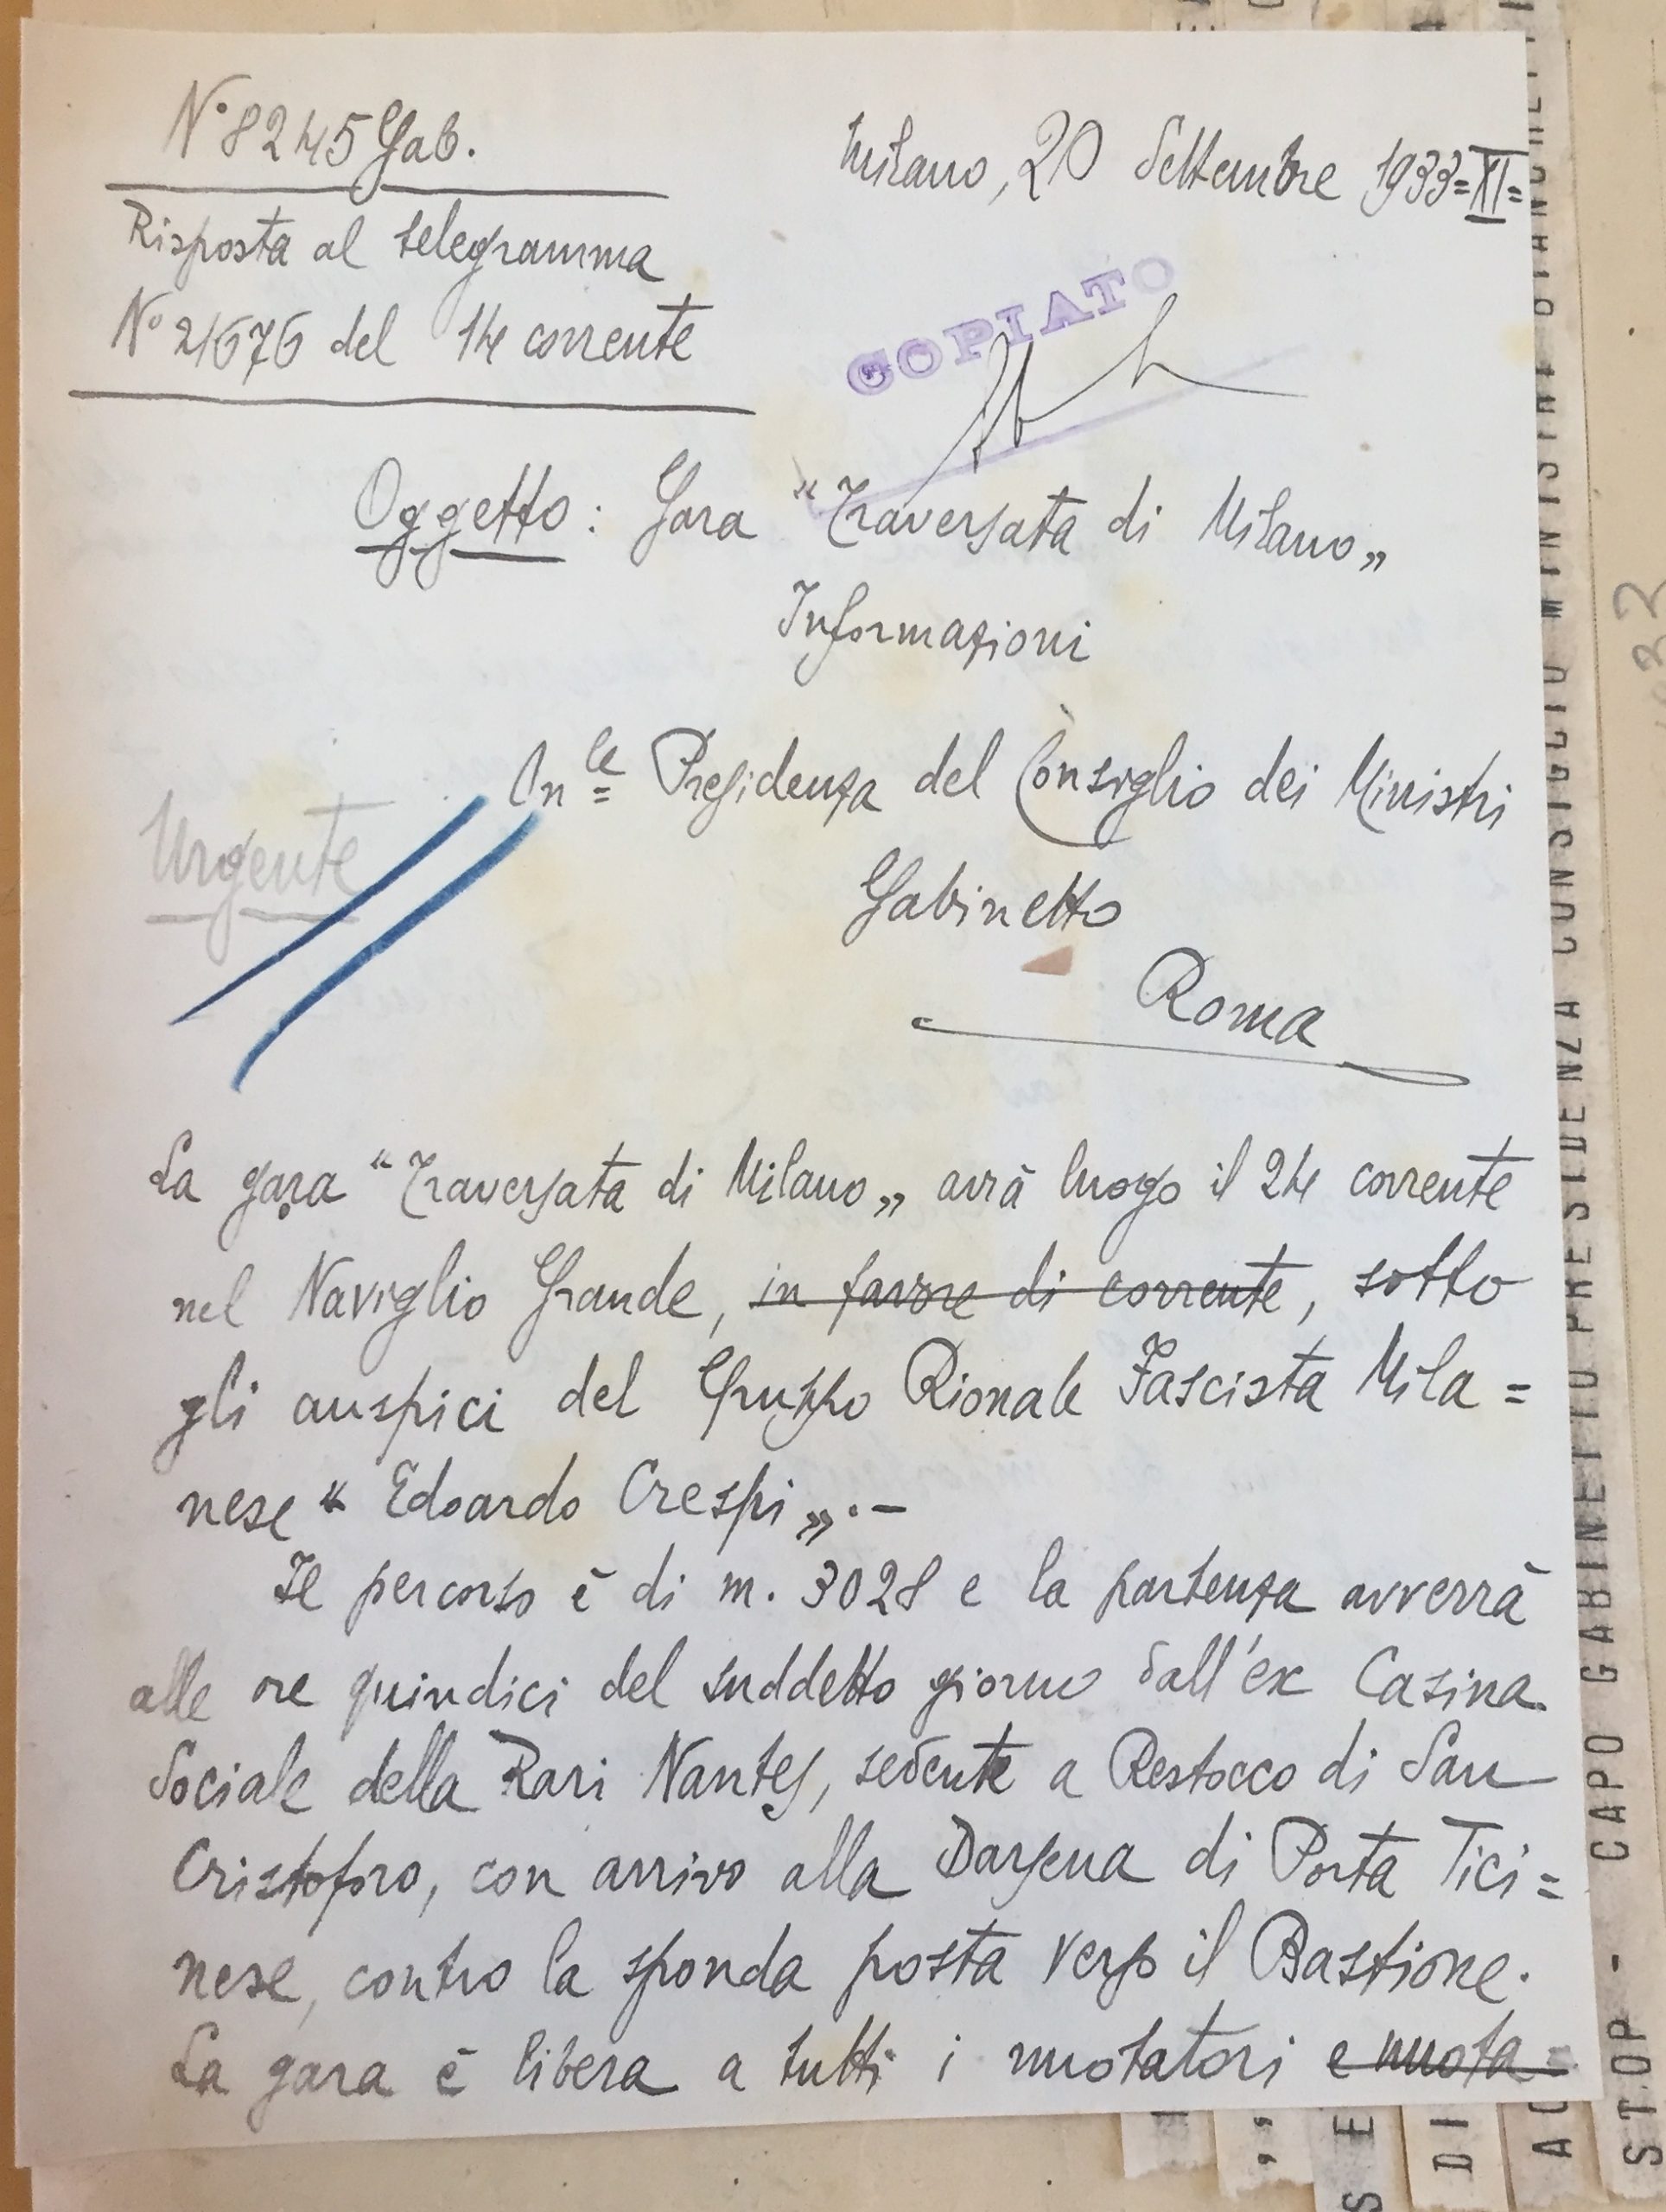 N° 8245 Gab.
Milano, 20 Settembre 1933=XI=
Risposta al telegramma
N° 21676 del 14 corrente
COPIATO
Oggetto: Gara "Traversata di Milano„
Informazioni
On.le Presidenza del Consiglio dei Ministri
Urgente
Gabinetto
Roma
La gara "Traversata di Milano„ avrà luogo il 24 corrente
nel Naviglio Grande, in favore di corrente, sotto
gli auspici del Gruppo Rionale Fascista Mila=
nese "Edoardo Crespi„.–
Il percorso è di m. 3028 e la partenza avverrà
alle ore quindici del suddetto giorno dall'ex Casina
Sociale della Rari Nantes, sedente a Restocco di San
Cristoforo, con arrivo alla Darsena di Porta Tici=
nese, contro la sponda posta verso il Bastione.
La gara è libera a tutti i nuotatori e nuota=
CAPO GABINETTO PRESIDENZA CONSIGLIO MINISTRI
STOP -